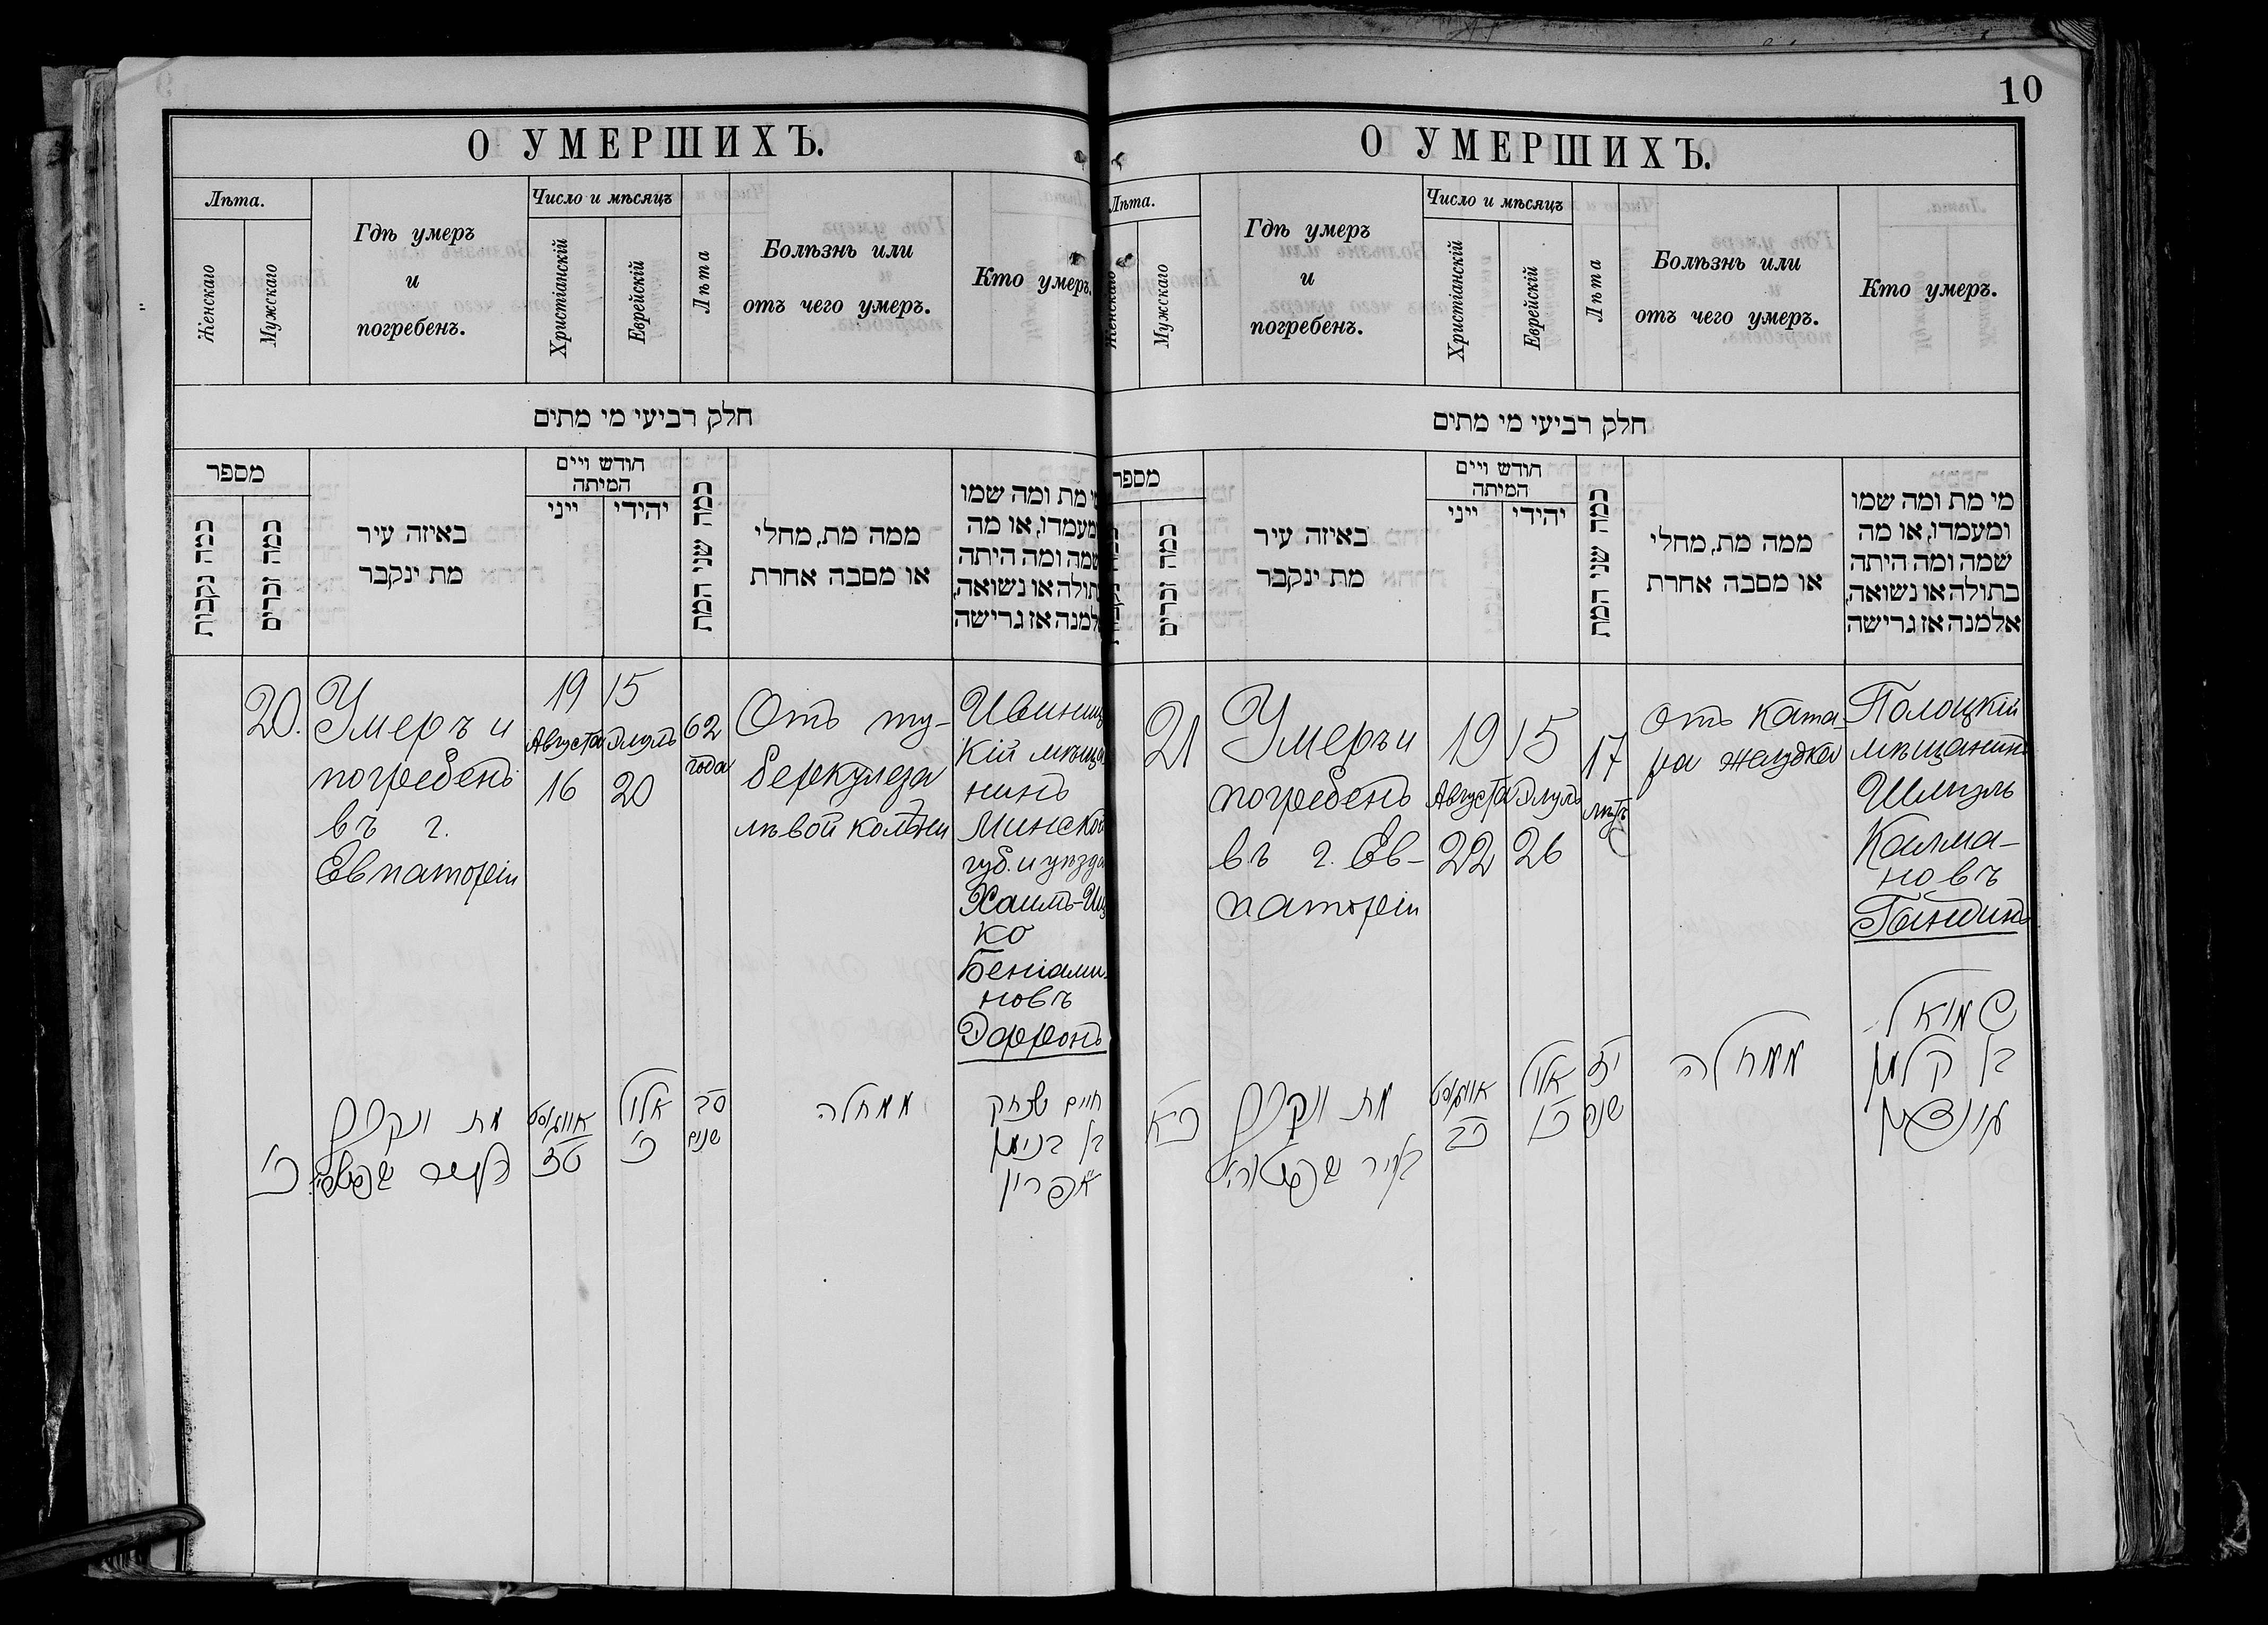 О УМЕРШИХЪ.
Лѣта.
Женскаго
Мужскаго
Гдѣ умеръ
и
погребенъ.
Число и мѣсяцъ
Христіанскій
Еврейскій
Лѣта
Болѣзнь или
отъ чего умеръ.
Кто умеръ.
חלק רביעי מי מתים
מספר
כמה נקבות
כמה זכרים
באיזה עיר
מת ינקבר
חודש ויים
המיתה
ייני
יהודי
כמה שני המת
ממה מת, מחלי
או מסבה אחרת
מת ומה שמו
ומעמדו, או מה
שמה ומה היתה
או נשואה,
אז גרישה
20.
Умеръ и
погребенъ
въ г.
Евпаторіи
19
Августа
16
15
Элулъ
20
62
года
Отъ ту-
беркулеза
лѣвой
Ивинец
кій мѣща
нинъ
Минской
губ. и уѣзда
Хаимъ-Иц
ко
Беніами
новъ
Эфронъ
כ'
מת ונקבר
אווגוסט
טז
אלול
כ'
סב
שנים
ממחלה
חיים יצחק
בן בנימן
עפרון
10
О УМЕРШИХЪ.
Лѣта.
Женскаго
Мужскаго
Гдѣ умеръ
и
погребенъ.
Число и мѣсяцъ
Христіанскій
Еврейскій
Лѣта
Болѣзнь или
отъ чего умеръ.
Кто умеръ.
חלק רביעי מי מתים
מספר
כמה זכרים
באיזה עיר
מת ינקבר
חודש ויים
המיתה
ייני
יהודי
כמה שני המת
ממה מת, מחלי
או מסבה אחרת
מי מת ומה שמו
ומעמדו, או מה
שמה ומה היתה
בתולה או נשואה,
אלמנה אז גרישה
21
Умеръ и
погребенъ
въ г. Ев-
паторіи
19
Августа
22
15
Элулъ
26
17
лѣтъ
Отъ ката-
ра желудка
Полоцкій
мѣщанинъ
Шмуэль
Калма-
новъ
כא
מת ונקבר
בעיר
אווגוסט
כב
אלול
כו
יז
שנה
ממחלה
שמואל
בן קלמן